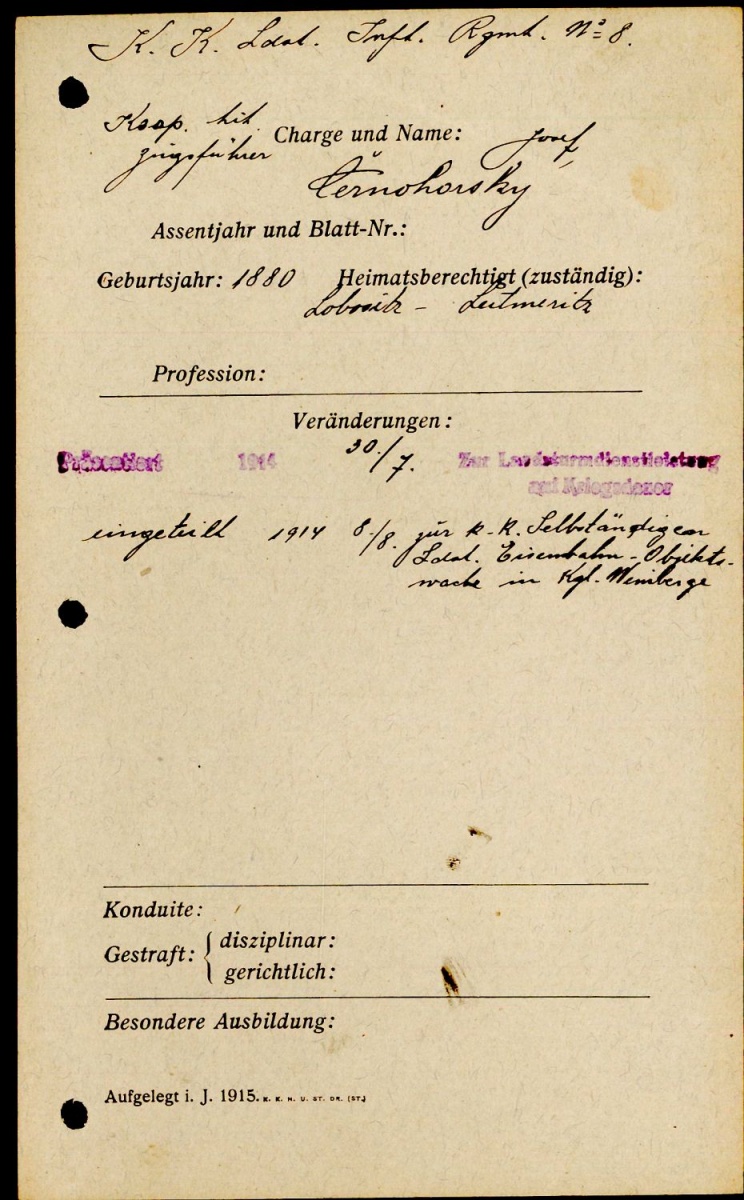 K. K. Ldst. Inft. Rgmt. Nº 8.
Korp. tit.
zugsführer
Charge und Name: Josef
Černohorsky
Assentjahr und Blatt-Nr.:
Geburtsjahr: 1880 Heimatsberechtigt (zuständig):
Lobositz - Leitmeritz
Profession:
Veränderungen:
Präsentiert 1914 30./7. Zur Landsturmdienstleistung
auf Kriegsdauer
eingeteilt 1914 8/8. zur k. k. Selbständigen
Ldst. Eisenbahn-Objekts-
wache in Kgl. Weinberge
Konduite:
Gestraft: { disziplinar:
gerichtlich:
Besondere Ausbildung:
Aufgelegt i. J. 1915. K. K. H. U. ST. DR. (ST.)